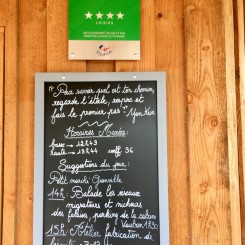 LOISIRS
" Pour savoir quel est ton chemin,
regarde l'étoile, respire et
fais le premier pas " Man Kun
Horaires Marées :
basse → 12H43
haute → 18H44 coeff 36
Suggestions du jour :
Petit marché
14H : Balade les oiseaux
migrateurs et nicheurs
des falaises, parking de la cabane
Vauban 1H30
15H : Atelier fabrication de